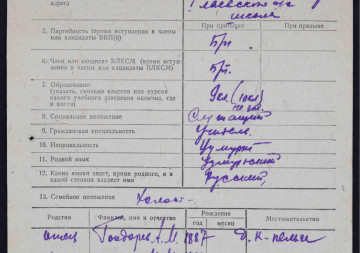 адрес)
школе
При приписке При призыве
5. Партийность (время вступления в члены
или кандидаты ВКП(б)
Б/п
6. Член или кандидат ВЛКСМ (время вступ-
ления в члены или кандидаты ВЛКСМ)
Б/п.
7. Образование
(указать, сколько классов или курсов
какого учебного заведения окончил, где
и когда)
8. Социальное положение
Служащий
9. Гражданская специальность
учитель
10. Национальность
Удмурт
11. Родной язык
Удмуртский
12. Какие языки знает, кроме родного, и в
какой степени владеет ими
Русский
13. Семейное положение
Холост
Родство Фамилия, имя и отчество Рождение Местожительство
год месяц
отец А.М. 1887